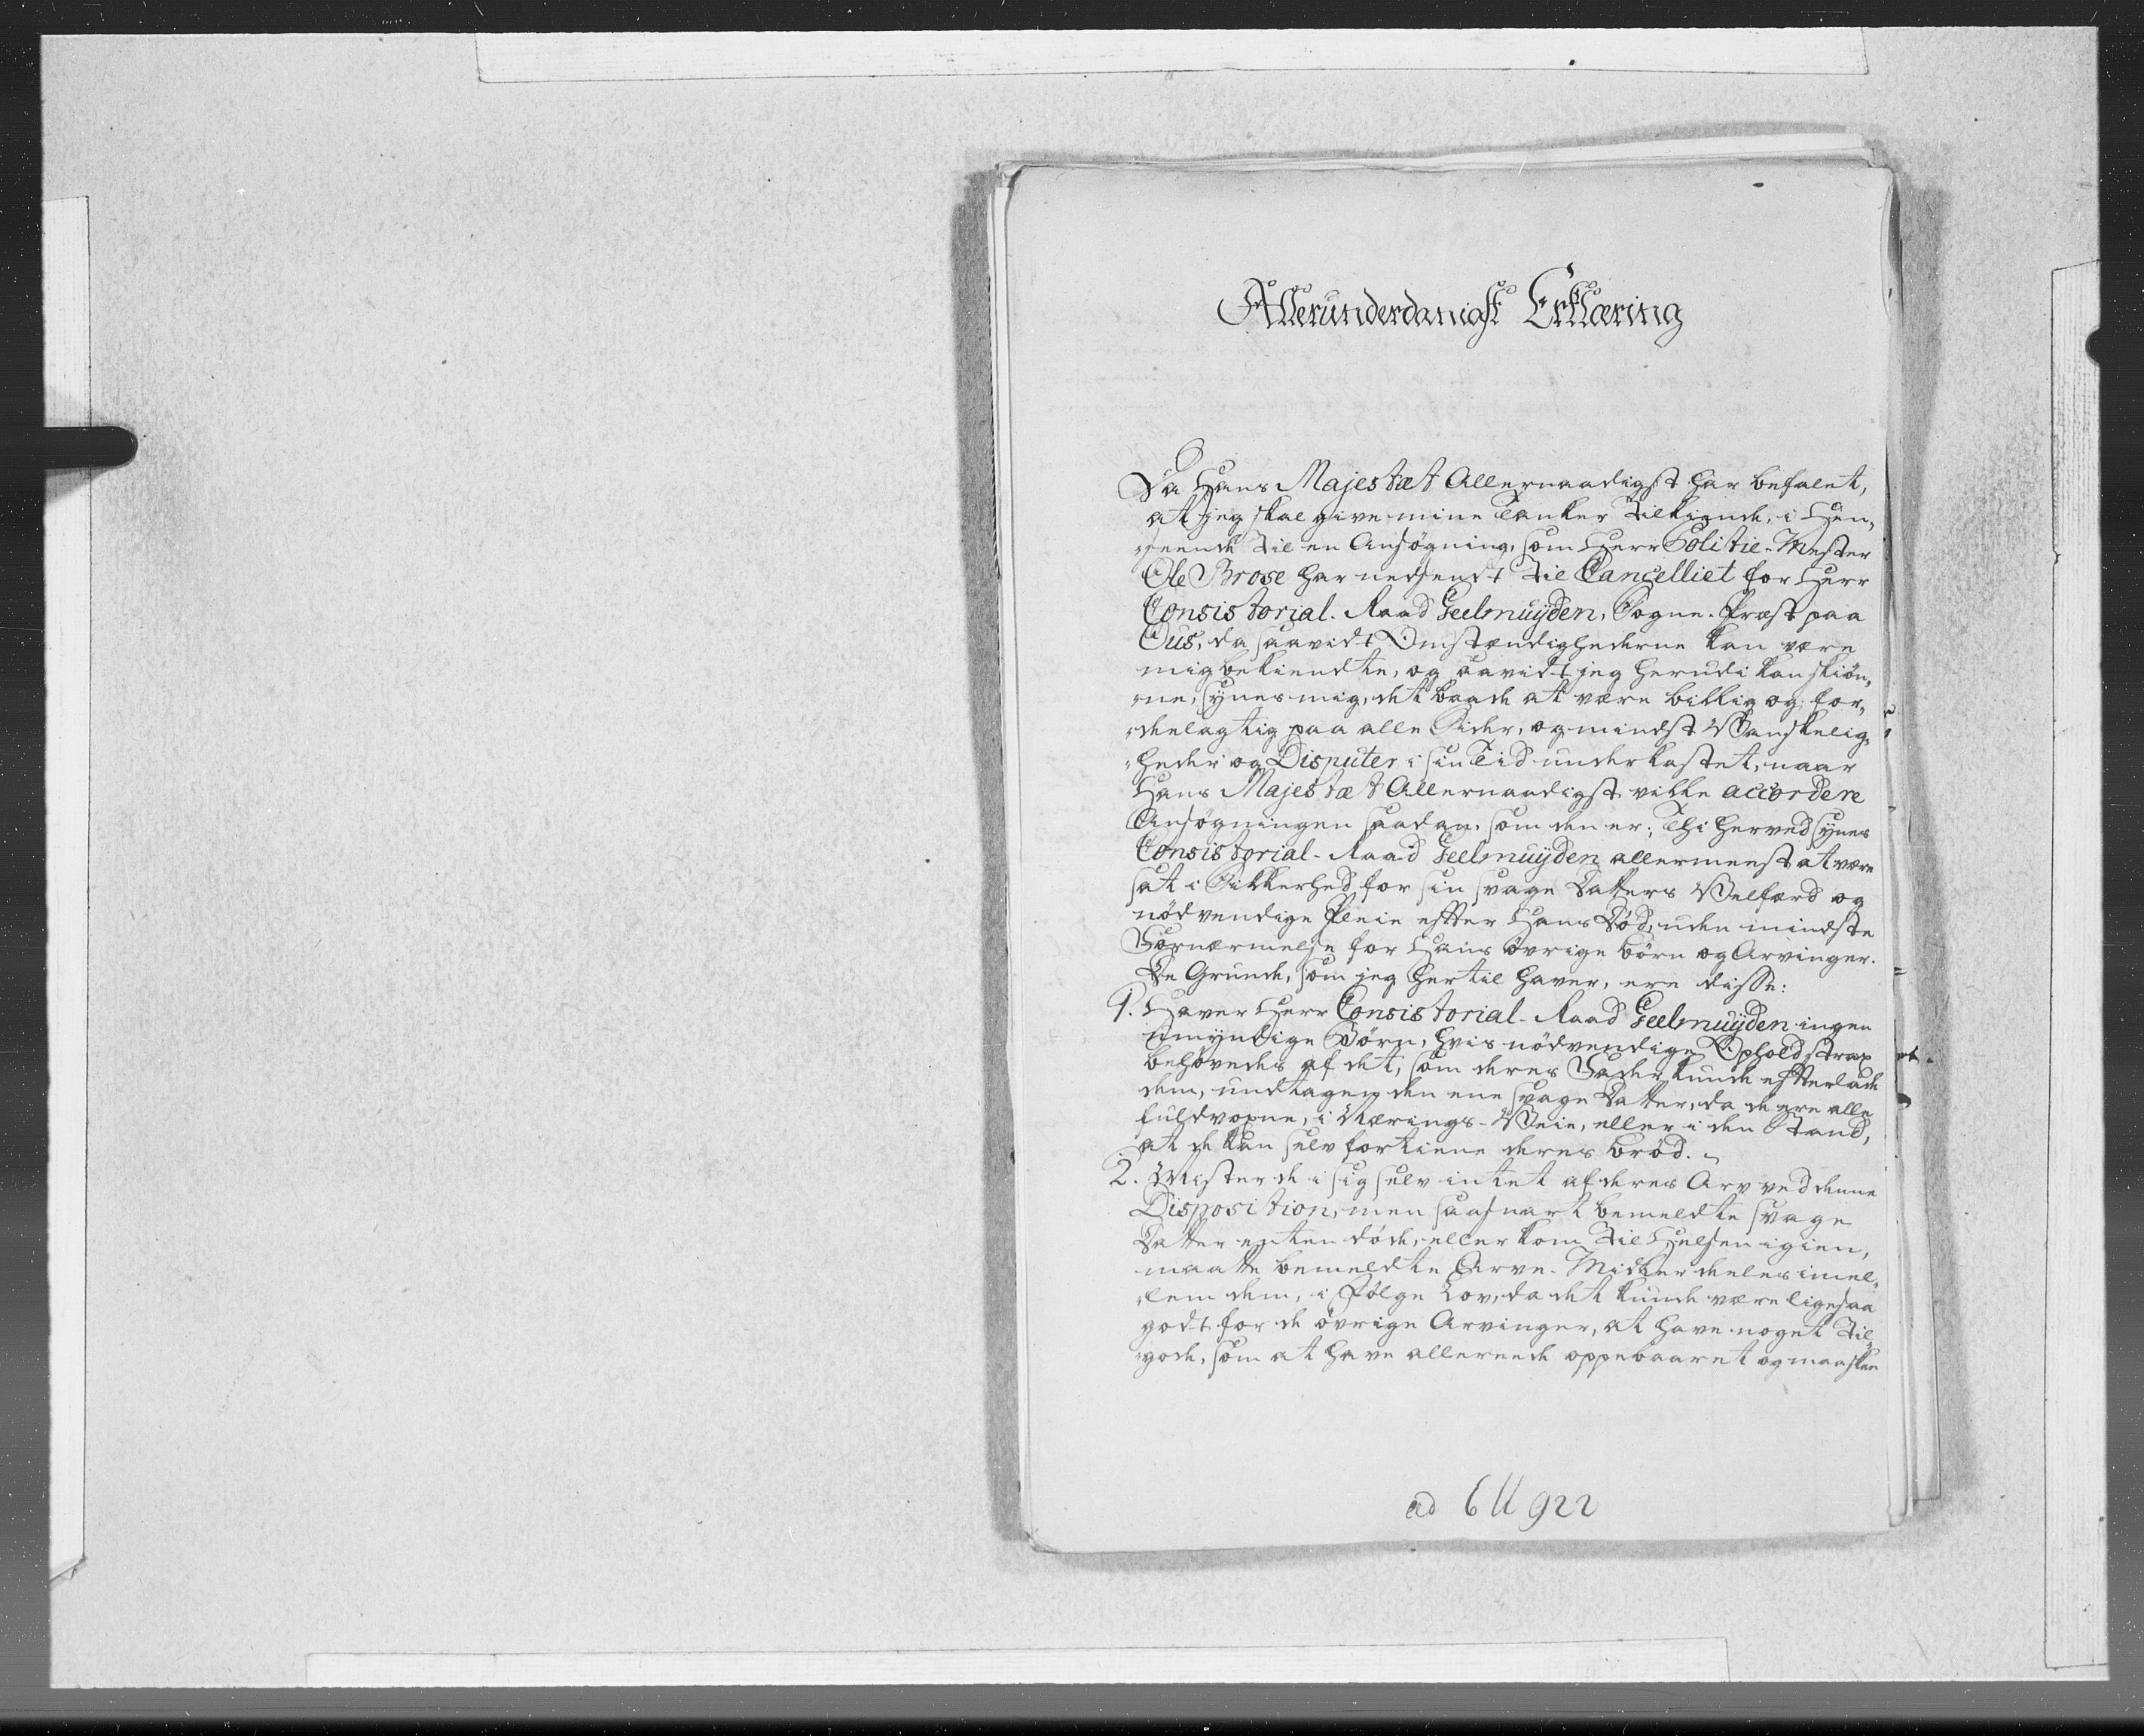 Allerunderdanigst Erklæring
Da Hans Majestæt Allernaadigst har befalet,
at jeg skal give mine Tanker tilkiende, i Hen„
„seende til en Ansøgning, som Herr Politie-Mester
Ole Brose har nedsendt til Cancelliet for Herr
Consistorial-Raad Geelmuÿden, Sogne-Præst paa
Ous, da saavidt Omstændighederne kan være
mig bekiendte, og saavidt jeg herudi kan skiøn„
„ne, sÿnes mig, det baade at være billig og for„
„deelagtig paa alle Sider, og mindst Vanskelig„
„heder og Disputer i sin Tid underkastet, naar
Hans Majestæt Allernaadigst ville accordere
Ansøgningen saadan, som den er; Thi herved sÿnes
Consistorial-Raad Geelmuÿden allermeest at være
sat i Sikkerhed for sin svage Datters Velfærd og
nödvendige Pleie efter Hans Död, uden mindste
Fornærmelse for Hans övrige börn og Arvinger.
De Grunde, som jeg hertil haver, ere disse:
1. Haver Herr Consistorial-Raad Geelmuÿden ingen
umÿndige Börn, hvis nödvendige Ophold strax
behövedes af det, som deres Fader kunde efterlade
dem, undtagen den ene svage Datter, da de ere alle
fuldvoxne, i Nærings-Veie, eller i den Stand,
at de kan selv fortiene deres bröd.
2. Mister de i sig selv intet af deres Arv ved denne
Disposition, men saasnart bemeldte svage
Datter enten döde, eller kom til Helsen igien,
maatte bemeldte Arve-Midler deeles imel„
„lem dem, i Fölge Lov, da det kunde være ligesaa
godt for de övrige Arvinger, at have noget til„
„gode, som at have allereede oppebaaret og maaskee
ad 6 U 922